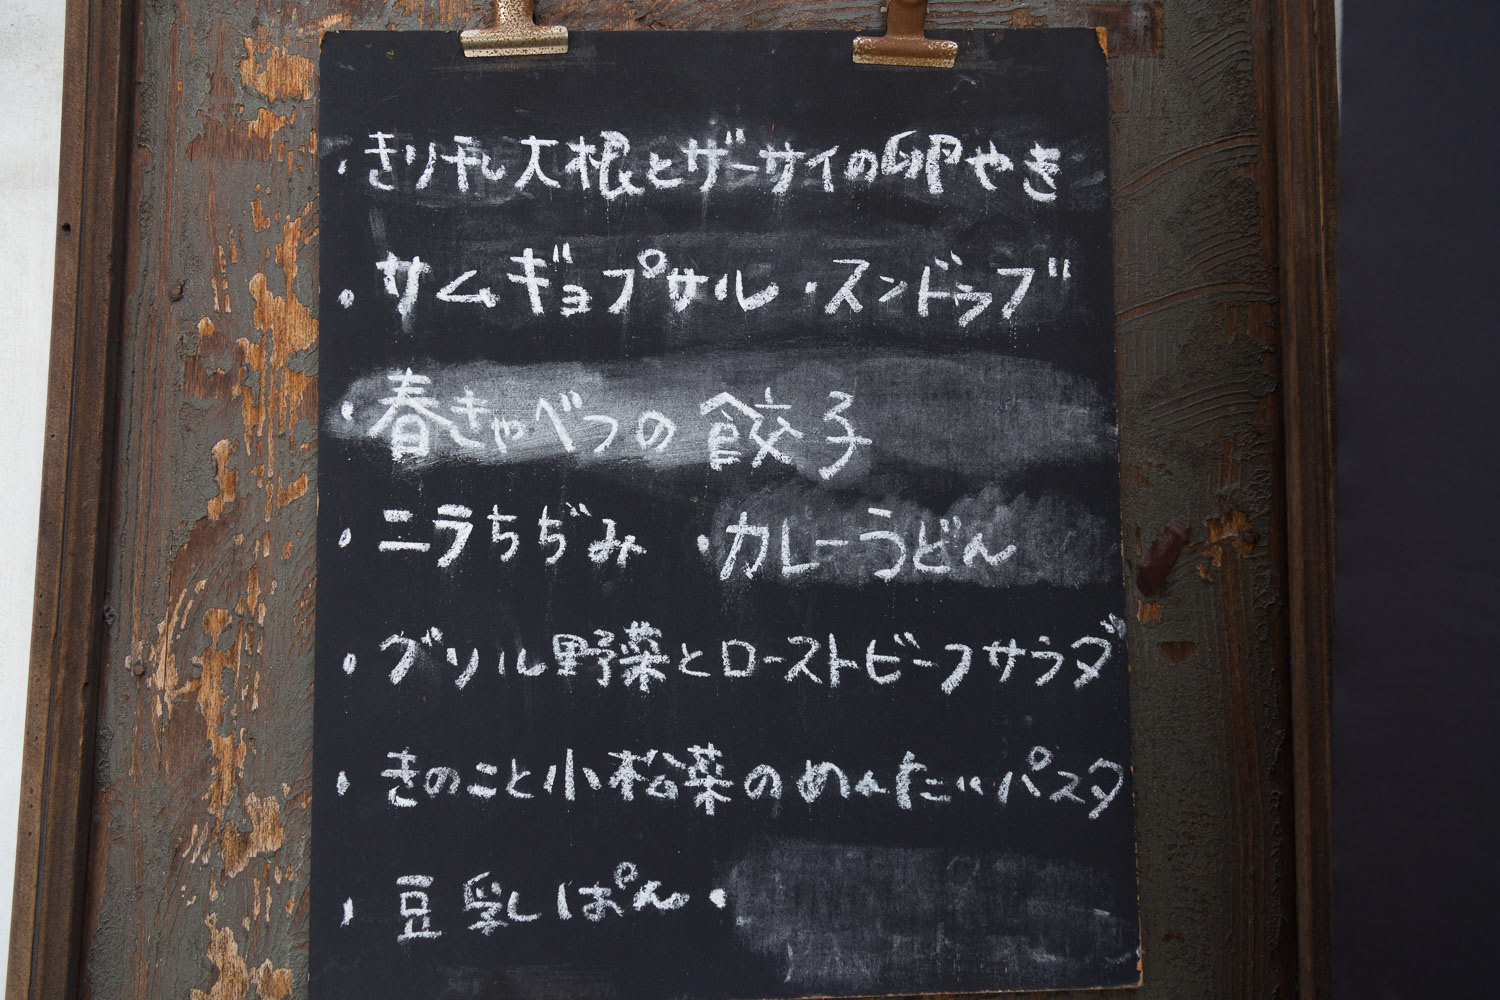 ・きり干し大根とザーサイの卵やき
・サムギョプサル・スンドゥブ
・春きゃべつの餃子
・ニラちぢみ ・カレーうどん
・グリル野菜とローストビーフサラダ
・きのこと小松菜のめんたいパスタ
・豆乳ぱん・